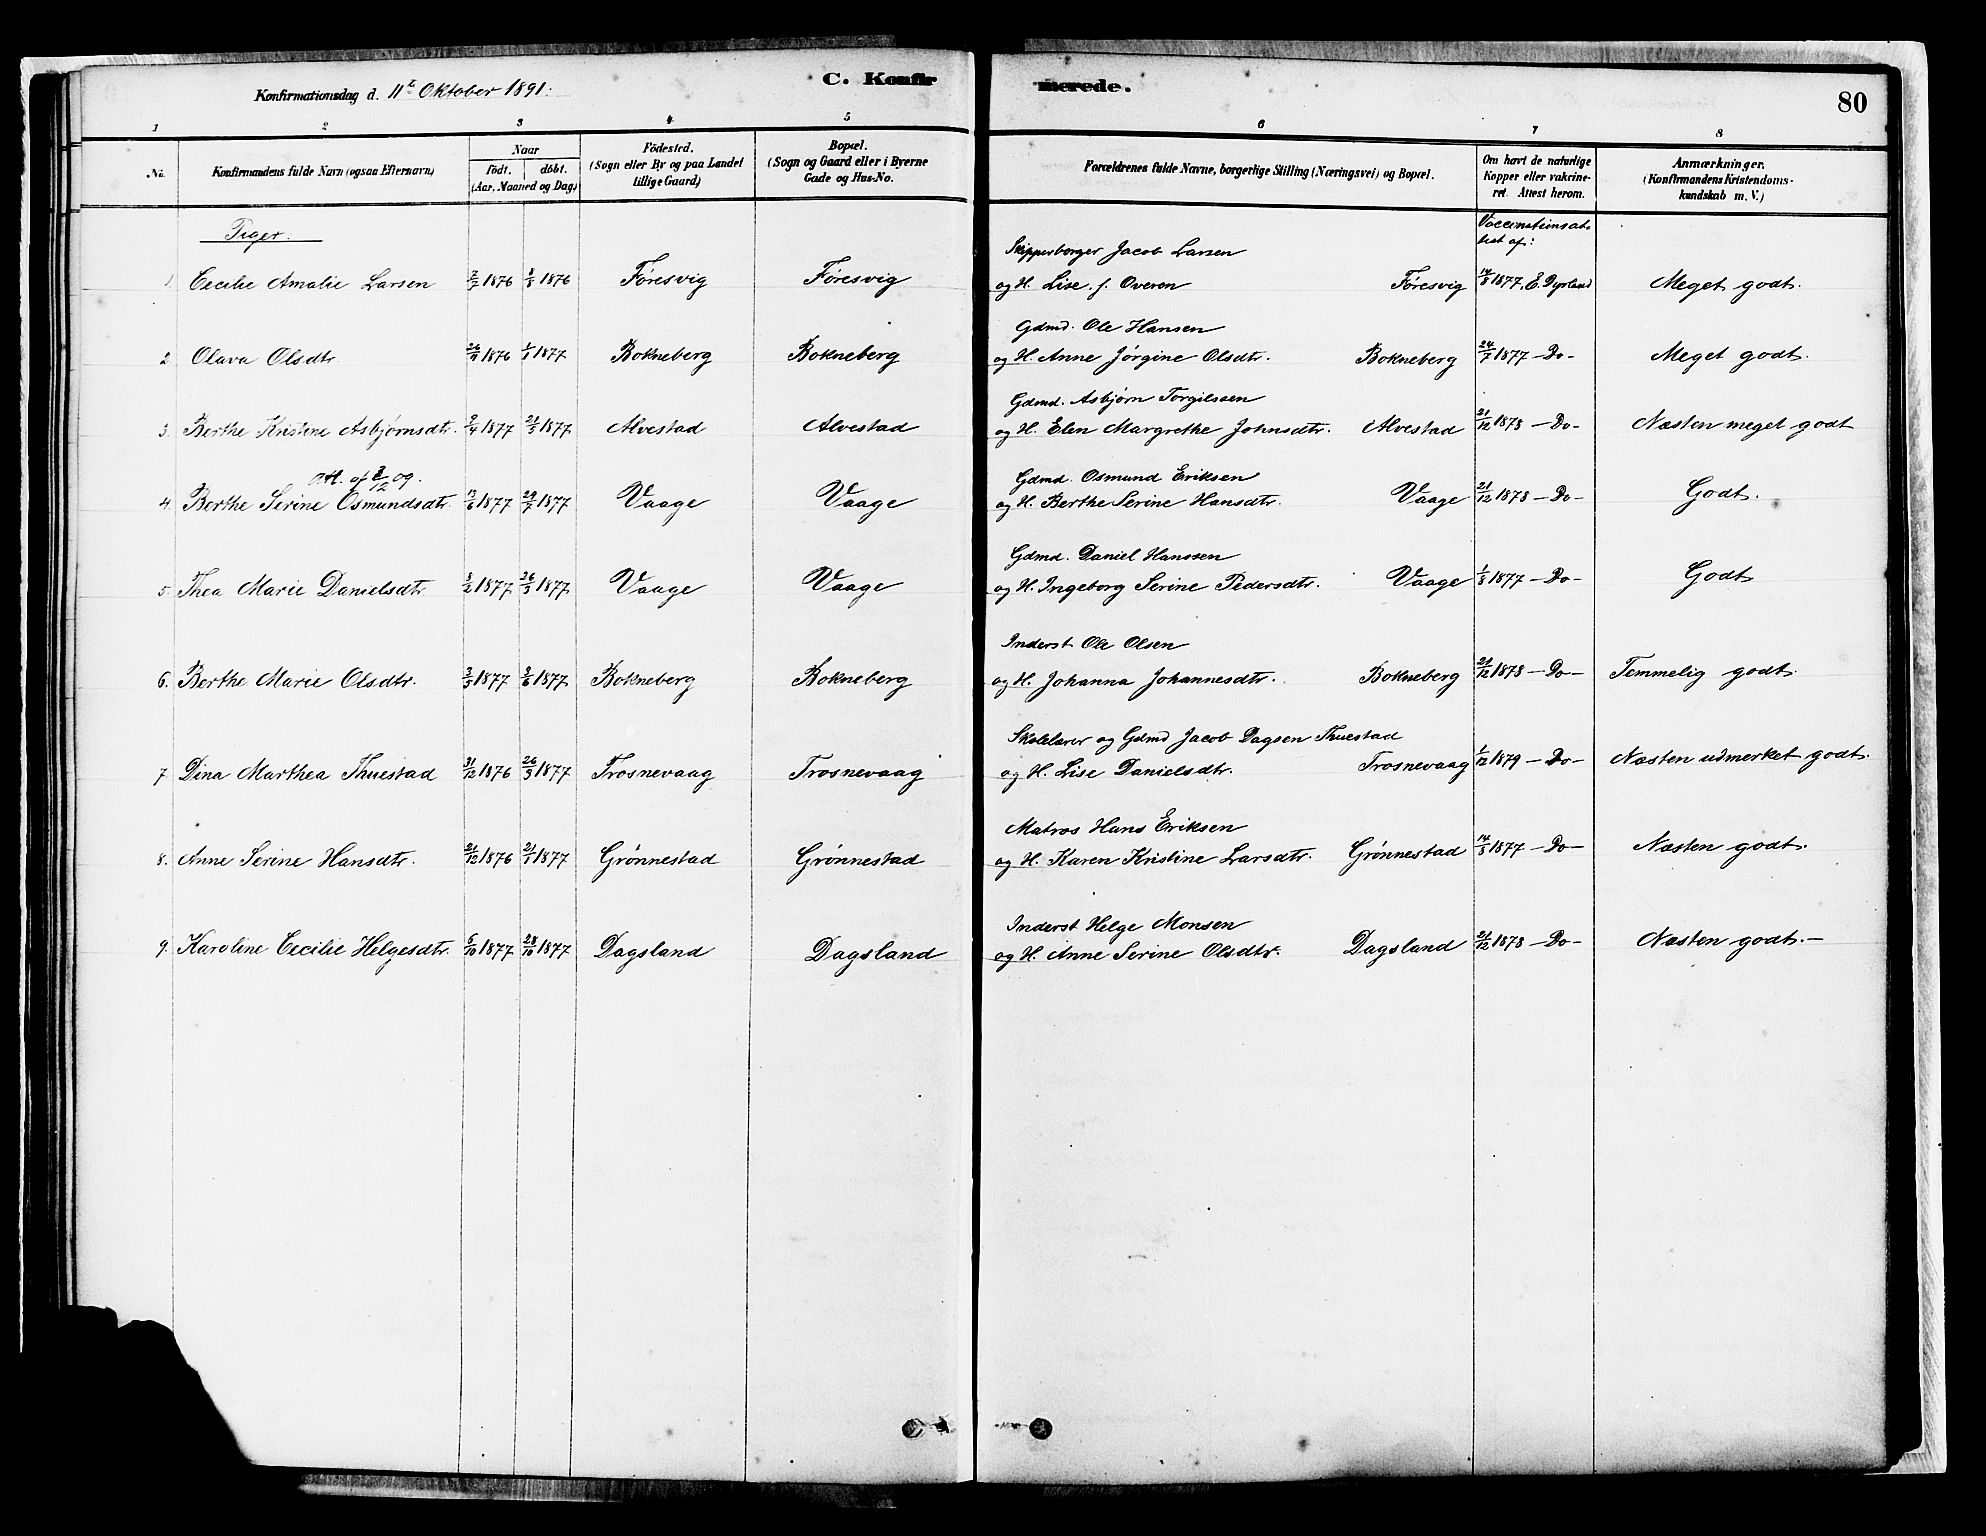 C. Konfirmerede.
80
Konfirmationsdag d. 11te Oktober 1891.
1 2 3 4 5 6 7 8
No.
Konfirmandens fulde Navn (ogsaa Efternavn)
Naar
födt. döbt.
(Aar, Maaned og Dag)
Födested.
(Sogn eller By og paa Landet
tillige Gaard)
Bopæl.
(Sogn og Gaard eller i Byerne
Gade og Hus-No.
Forældrenes fulde Navne, borgerlige Stilling (Næringsvei) og Bopæl.
Om havt de naturlige
Kopper eller vakcine-
ret. Attest herom.
Anmærkninger.
(Konfirmandens Kristendoms-
kundskab m. V.)
Piger.
Vaccinationsat-
test af:
Skipperborger Jacob Larsen
1. Cecilie Amalie Larsen 7/7 1876 1876 Føresvig Føresvig og H. Lise, f. Overen Føresvig 14/8 1877, E. Dyrland Meget godt.
Gdmd. Ole Hansen
2. Olava Olsdtr. 1876 1/1 1877 Bokneberg Bokneberg og H. Anne Jørgine Olsdtr. Bokneberg 24/7 1877 – Do – Meget godt.
Gdmd. Asbjørn Torgilssen
3. Berthe Kristine Asbjørnsdtr. 9/4 1877 21/5 1877 Alvestad Alvestad og H. Elen Margrethe Johnsdtr. Alvestad 21/12 1878 – Do – Næsten meget godt
Att. af 3/12 09.
Gdmd. Osmund Eriksen
4. Berthe Serine Osmundsdtr. 13/6 1877 29/7 1877 Vaage Vaage og H. Berthe Serine Hansdtr. Vaage 21/12 1878 – Do – Godt.
Gdmd. Daniel Hanssen
5. Thea Marie Danielsdtr. 3/2 1877 26/3 1877 Vaage Vaage og H. Ingeborg Serine Pedersdtr. Vaage 1/8 1877 – Do – Godt
Inderst Ole Olsen
6. Berthe Marie Olsdtr. 3/5 1877 3/6 1877 Bokneberg Bokneberg og H. Johanna Johannesdtr. Bokneberg 21/12 1878 – Do – Temmelig godt.
Skolelærer og Gdmd Jacob Dagsen Thuestad
7. Dina Marthea Thuestad 31/12 1876 26/3 1877 Trosnevaag Trosnevaag og H. Lise Danielsdtr. Trosnevaag 1/12 1879 – Do – Næsten udmerket godt.
Matros Hans Eriksen
8. Anne Serine Hansdtr. 21/12 1876 21/1 1877 Grönnestad Grönnestad og H. Karen Kristine Larsdtr. Grönnestad 14/8 1877 – Do – Næsten godt.
Inderst Helge Monsen
9. Karoline Cecilie Helgesdtr. 5/10 1877 28/10 1877 Dagsland Dagsland og H. Anne Serine Olsdtr. Dagsland 21/12 1878 – Do – Næsten godt. –